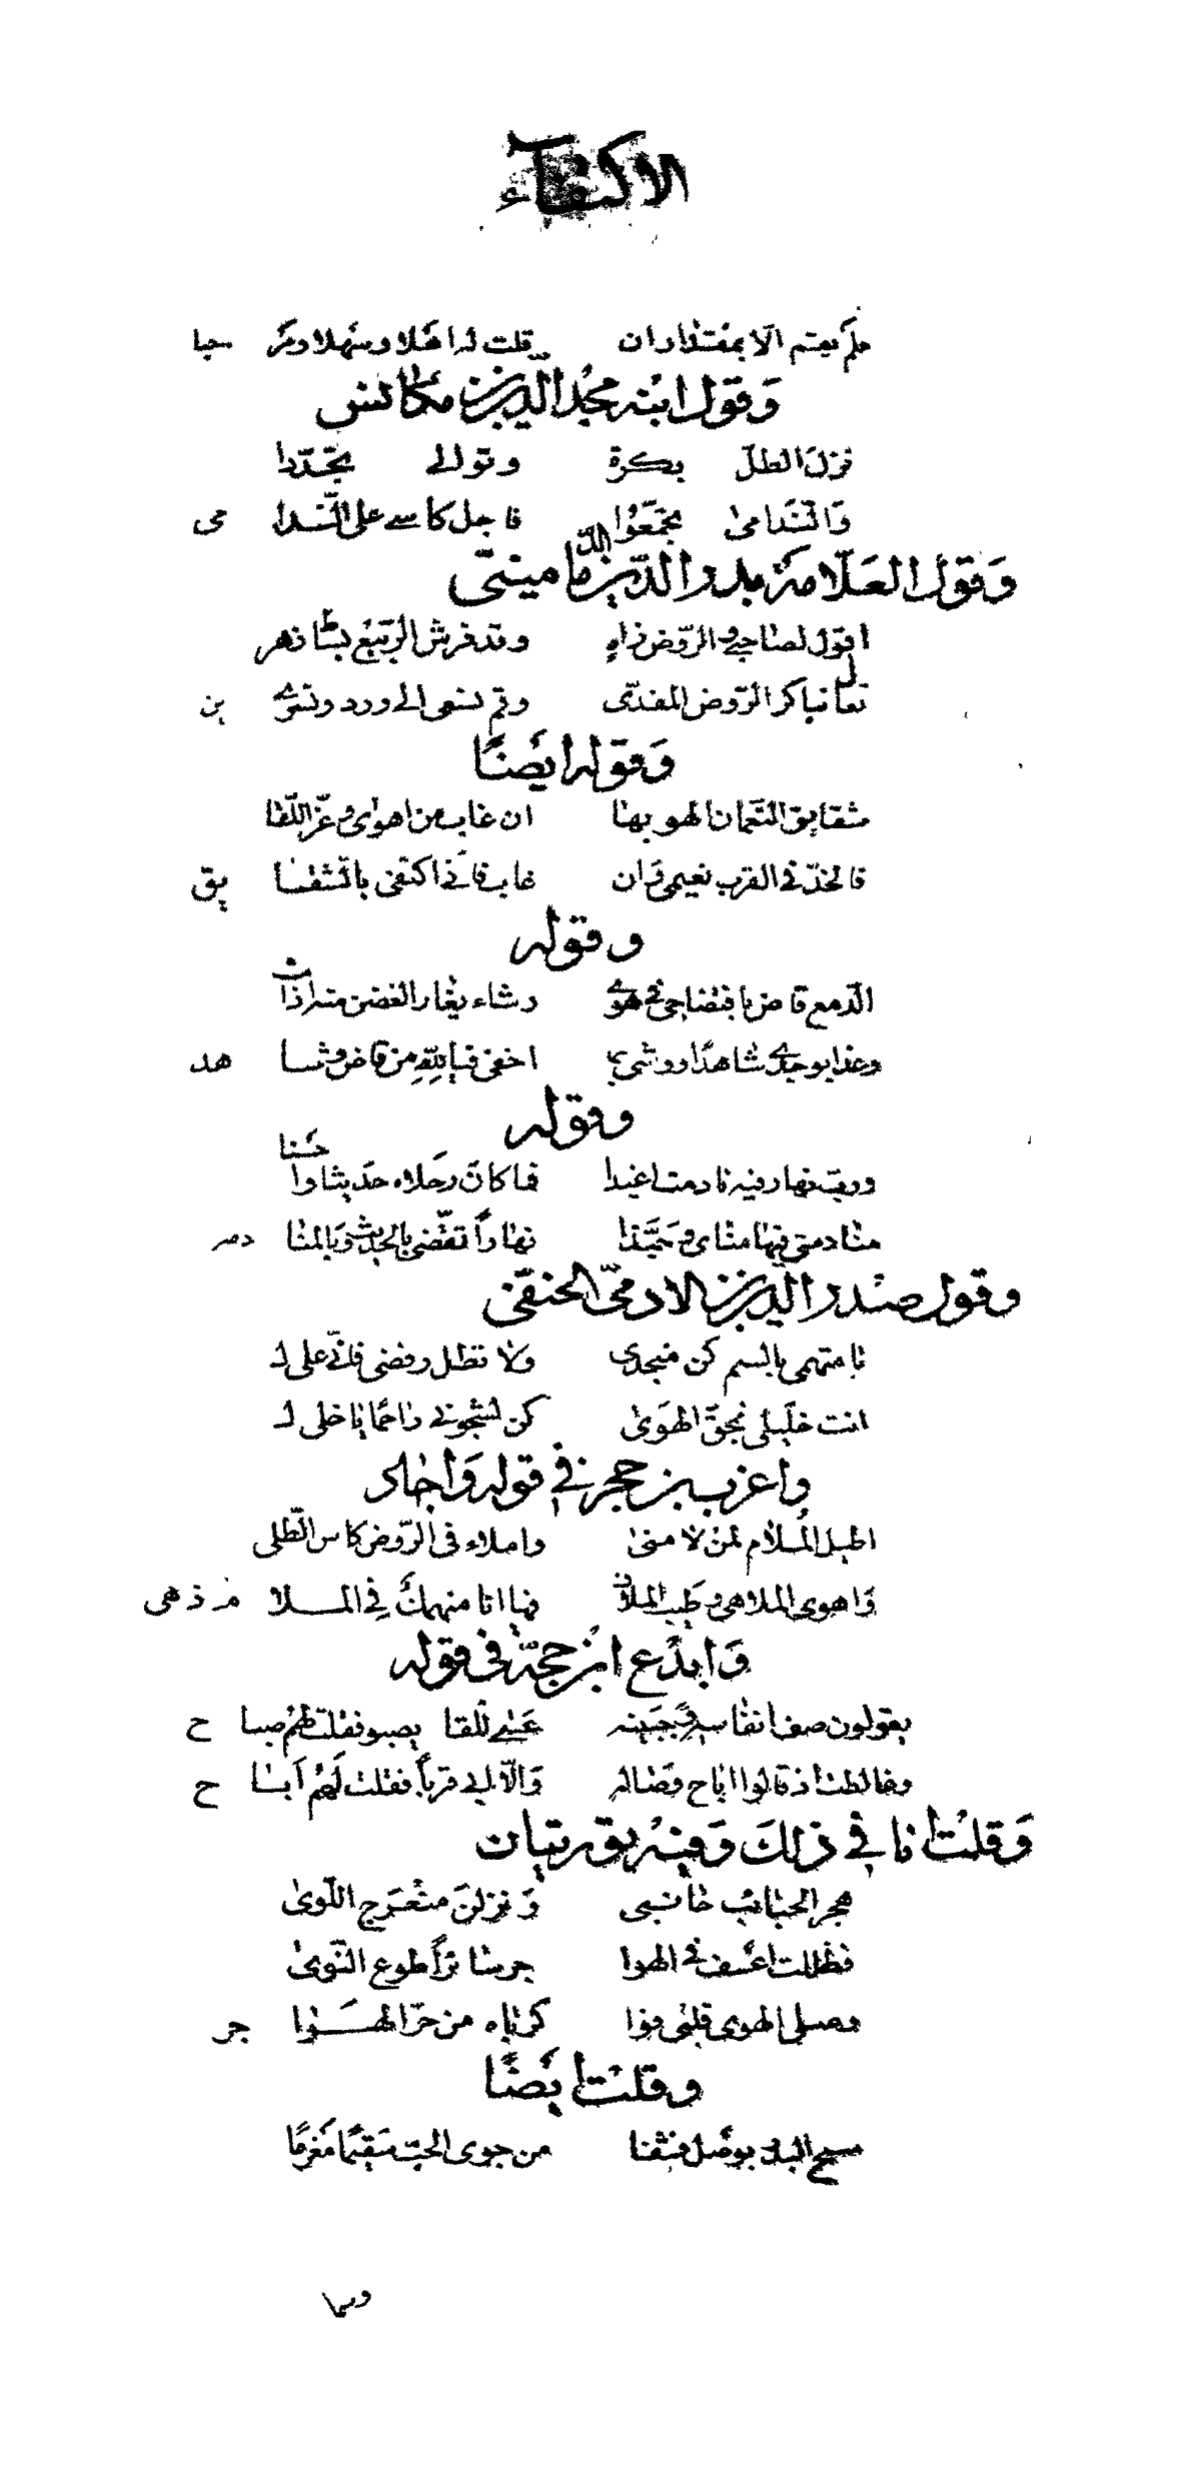 الاكتفآء
فلم يعتم الا بمقدار ان قلت له اهلا وسهلا ومر حبا
وَقول ابنه مجد الدّين بن مكانس
نزل الطلّ بكرة وتوالى تجدّدا
وَالنّدامى تجمّعوا فاجل كاسى على النّدا مى
وَقول العَلّامة بدر الدّين الدّمامينىّ
اقول لصاحبى والرّوض زاهٍ وقد فرش الرّبيع بساط زهر
تعال نباكر الرّوض المفدّى وقم نسعى الى ورد ونسرى ين
وَقوله ايضًا
شقايق النّعمان الهو بها ان غاب من اهوى وعزّ اللّقا
فالخدّ فى القرب نعيمى وان غاب فانّى اكتفى بالشقا يق
وقوله
الدّمع قاض بافتضاحى فى هوى رشاء يغار الغصن منه اذا مشى
وغدا بوجدى شاهدًا ووشى بما اخفى فيالله من قاض وشا هد
وقوله
ورب نهار فيه نادمت اغيدا فما كان احلاه حديثا واحسنا
منادمتى فيها مناى وحبّذا نهاراً تقضّى بالحديث وبالمنا دمه
وقول صدر الدّين بن الادمىّ الحنفىّ
يا متهمى بالسم كن منجدى ولا تطل رفضى فانّى على ل
انت خليلى فبحقّ الهوى كن لشجونى راحمًا يا خلى ل
واغرب بن حجر فى قوله وَاجاد
اطيل الملام لمن لامنى واملاء فى الرّوض كاس الطّلى
وَاهوى الملاهى وطيب الملاذ فها انا منهمك فى الملا م ذ هى
وَابدع ابن حجّة فى قوله
يقولون صف انفاسه وجبينه عسى للقا يصبو فقلت لهم صبا ح
وغالطت اذ قالوا اباح وصاله وَالّا ابى قرباً فقلت لهم ابا ح
وَقلت انا فى ذلك وَفيه توريتان
هجر الحبايب خانبى وَنزلن منعرج اللّوى
فظللت اعسف فى الهوا جر سائراً طوع النّوى
وصلى الهوى قلبى فوا كرباه من حرّ الهوا جر
وقلت ايضًا
سمح الباد بوصل فشفنا من جوى الحبّ سقيمًا مغرمًا